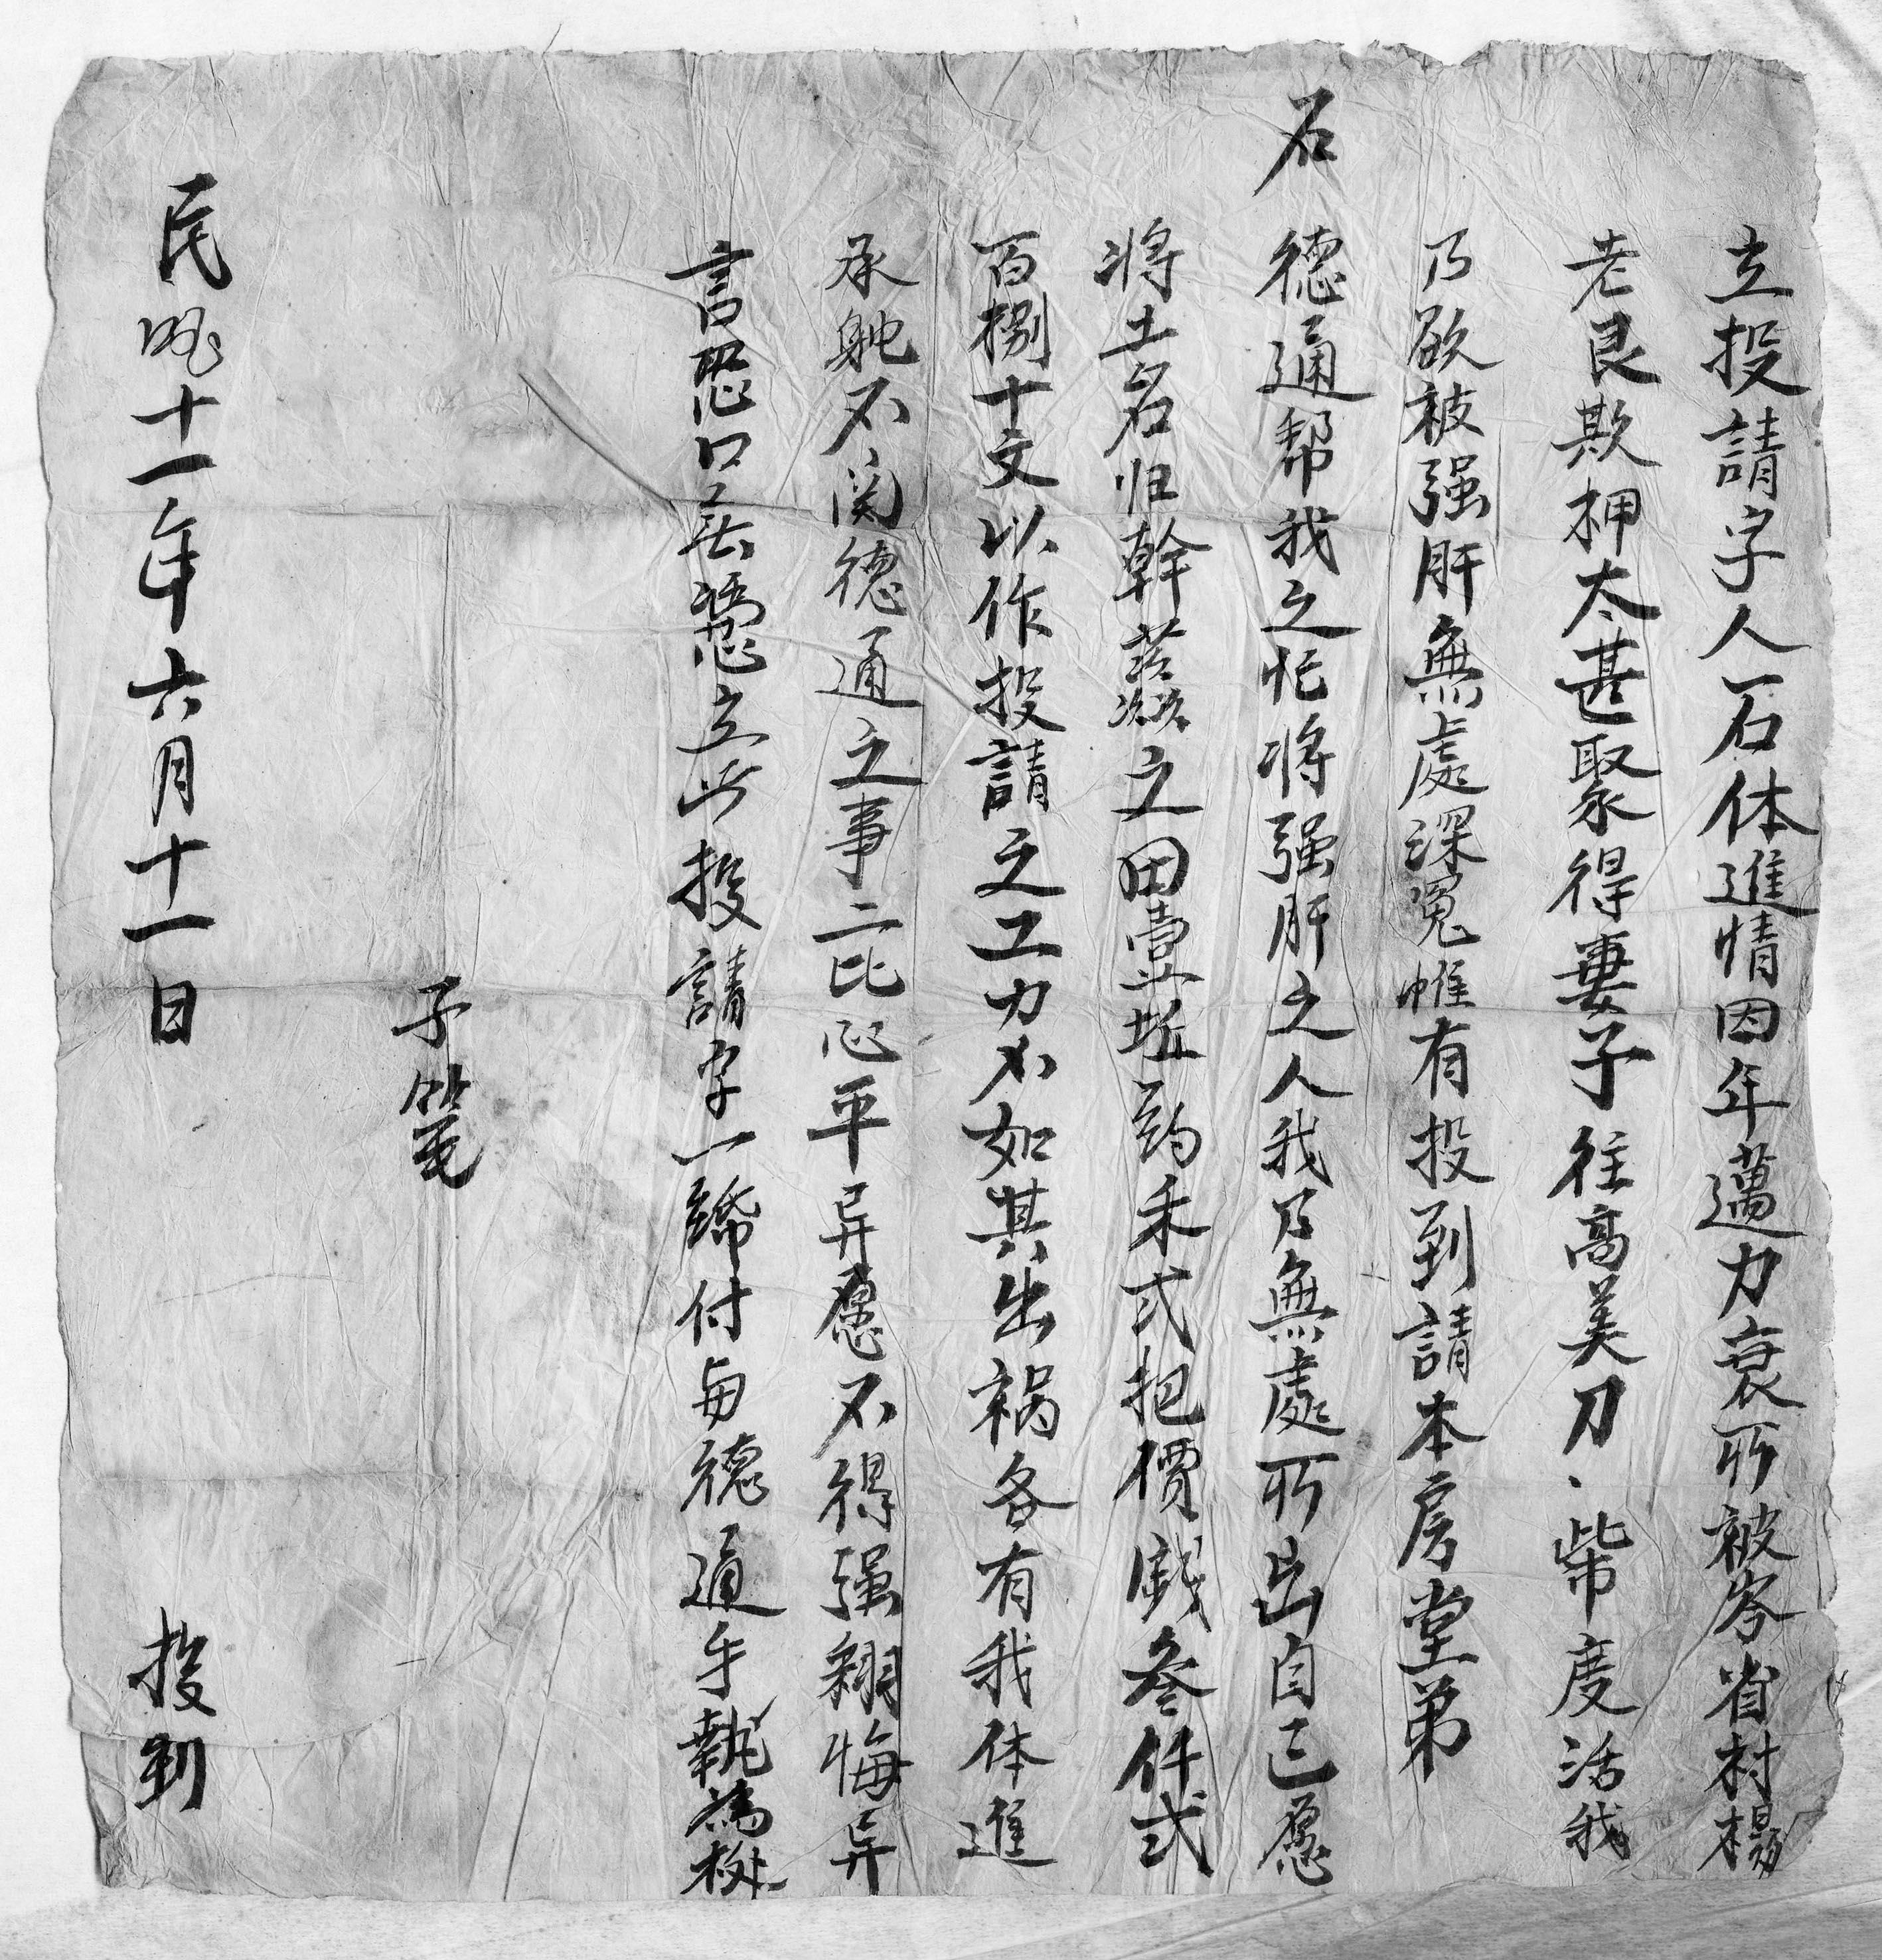 立投請字人石体進情因年邁力衰所被岑省村楊
老艮欺押太甚聚得妻子往高美刀柴度活我
乃欲被强肝無處深冤帷有投到請本房堂弟
石德通帮我之忙将强肝之人我乃無處所出自己愿
将土名归幹之田壹坵約禾弍把價錢叁仟弍
百捌十文以作投請之工力不如其出禍各有我体進
承躭不関德通之事二比心平异愿不得强翻悔异
言恐口無憑立此投請字一紙付与德通手執為
子笔
民國十一年六月十一日 投到